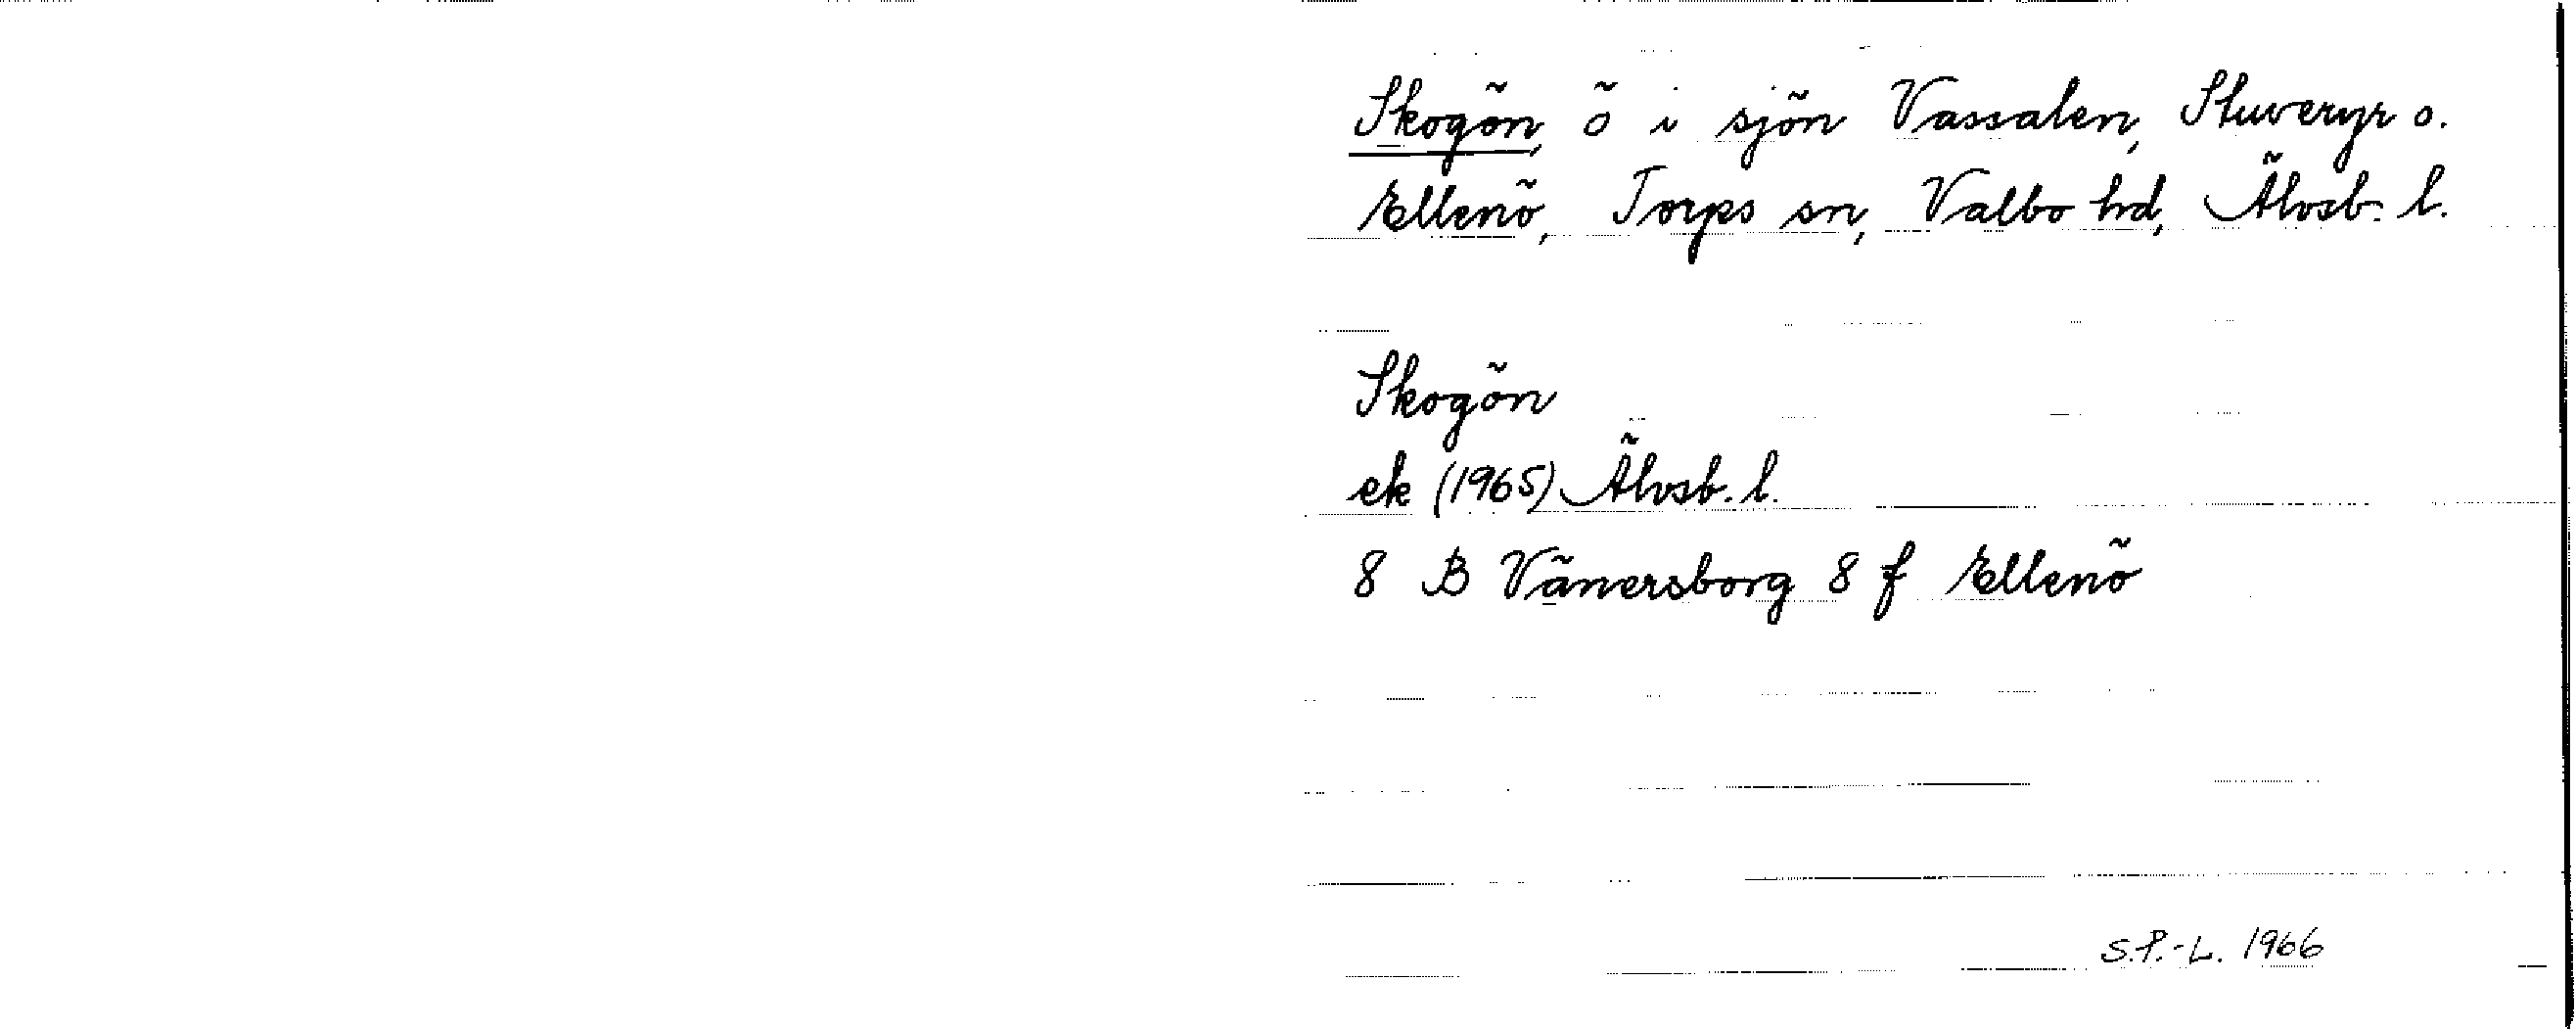 Skogön, ö i sjön Vassalen, Stuveryr o.
Ellenö, Torps sn, Valbo hd, Älvsb. l.
Skogön
ek (1965) Älvsb. l.
8 B Vänersborg 8 f Ellenö
S.P.-L. 1966